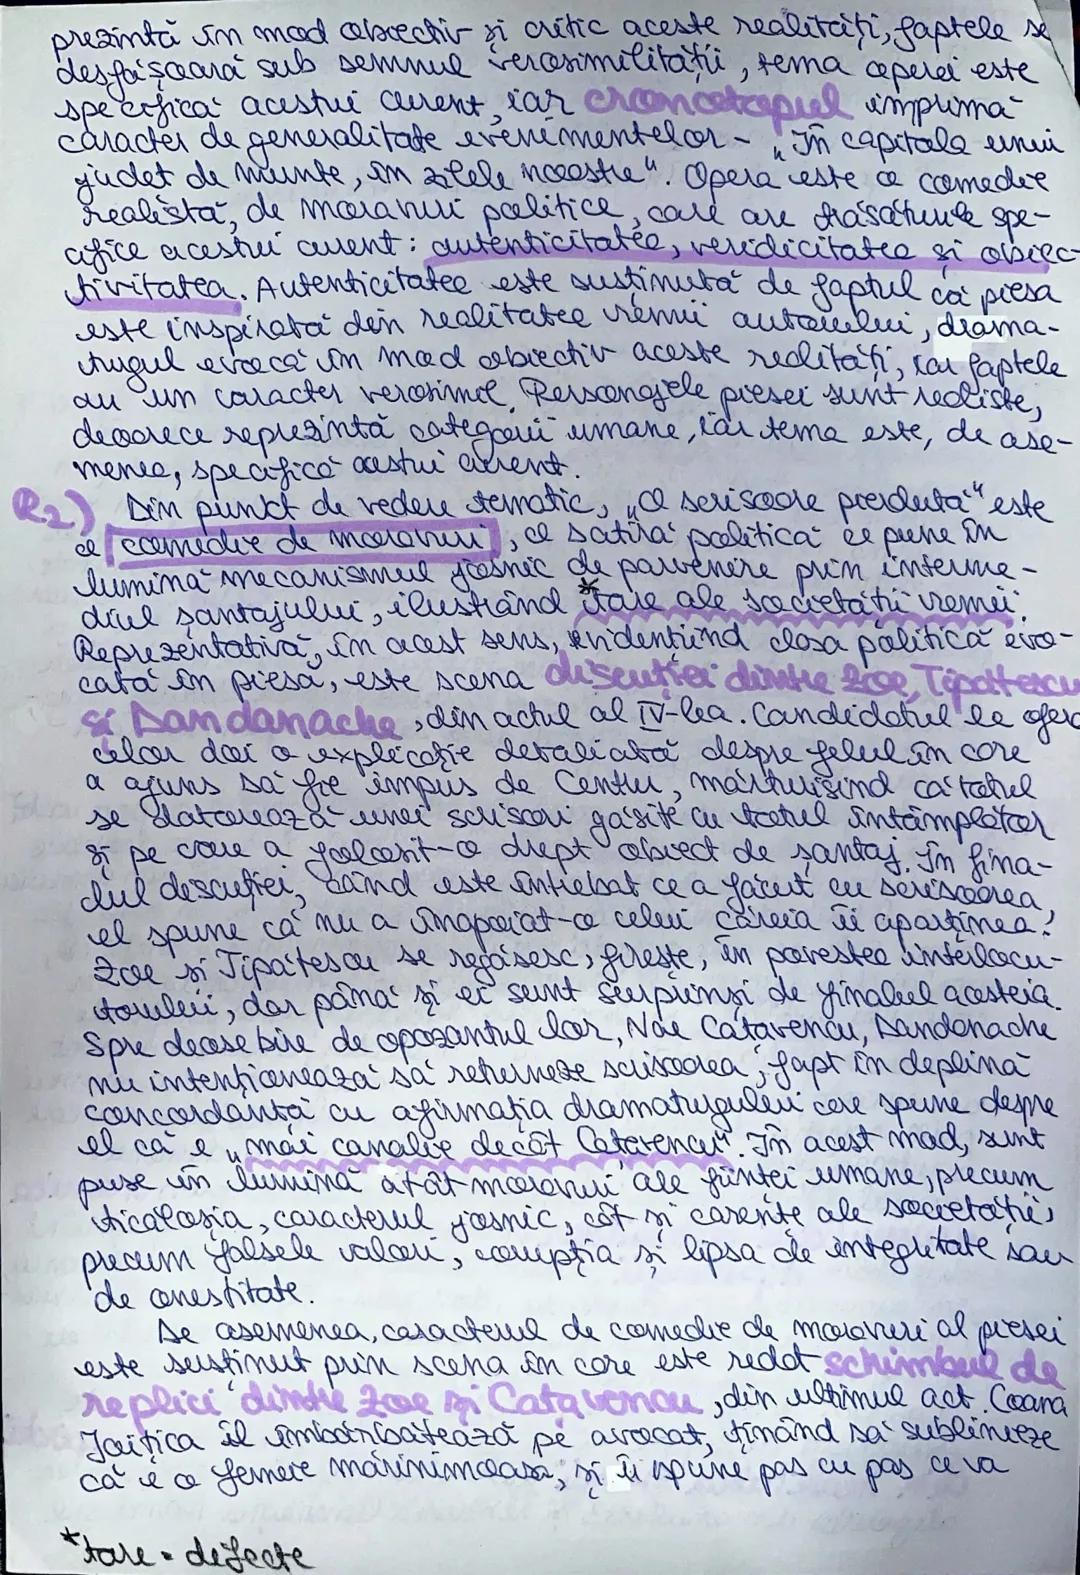 prezintă în mod obiectiv și critic aceste realități, faptele se
desfășoară sub semnul verosimilității, tema operei este
specifică acestui curent, iar cronotopul imprimă
caracter de generalitate evenimentelor - „În capitala unui
județ de munte, în zilele noastre". Opera este o comedie
realistă, de moravuri politice, care are trăsăturile spe-
cifice acestui curent: autenticitatea, veridicitatea și obiec-
tivitatea. Autenticitatea este susținută de faptul că piesa
este inspirată din realitatea vremii autorului, drama-
turgul evocă în mod obiectiv aceste realități, iar faptele
au un caracter verosimil. Personajele piesei sunt realiste,
deoarece reprezintă categorii umane, iar tema este, de ase-
menea, specifică acestui curent.
R2) Din punct de vedere tematic, „O scrisoare pierdută" este
o comedie de moravuri, o satiră politică ce pune în
lumină mecanismul josnic de parvenire prin interme-
diul șantajului, ilustrând *tare ale societății vremii.
Reprezentativă, în acest sens, evidențiind clasa politică evo-
cată în piesă, este scena discuției dintre Zoe, Tipătescu
și Dandanache, din actul al IV-lea. Candidatul le oferă
celor doi o explicație detaliată despre felul în care
a ajuns să fie impus de Centru, mărturisind că totul
se datorează unei scrisori găsite cu totul întâmplător
și pe care a folosit-o drept obiect de șantaj. În fina-
lul discuției, când este întrebat ce a făcut cu scrisoarea,
el spune că nu a înapoiat-o celui căreia îi aparținea.
Zoe și Tipătescu se regăsesc, firește, în povestea interlocu-
torului, dar până și ei sunt surprinși de finalul acesteia.
Spre deosebire de opozantul lor, Nae Cațavencu, Dandanache
nu intenționează să returneze scrisoarea, fapt în deplină
concordanță cu afirmația dramaturgului care spune despre
el că e „mai canalie decât Cațavencu". În acest mod, sunt
puse în lumină atât moravuri ale ființei umane, precum
ticăloșia, caracterul josnic, cât și carențe ale societății,
precum falsele valori, corupția și lipsa de integritate sau
de onestitate.
De asemenea, caracterul de comedie de moravuri al piesei
este susținut prin scena în care este redat schimbul de
replici dintre Zoe și Cațavencu, din ultimul act. Coana
Joițica îl îmbărbătează pe avocat, ținând să sublinieze
că e o femeie mărinimoasă, și îi spune pas cu pas ceva
*tare = defecte